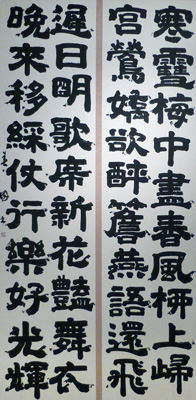 寒雪梅中盡春風柳上歸
宮鶯嬌欲醉簷燕語還飛
遲日明歌席新花豔舞衣
晚來移綵仗行樂好光輝